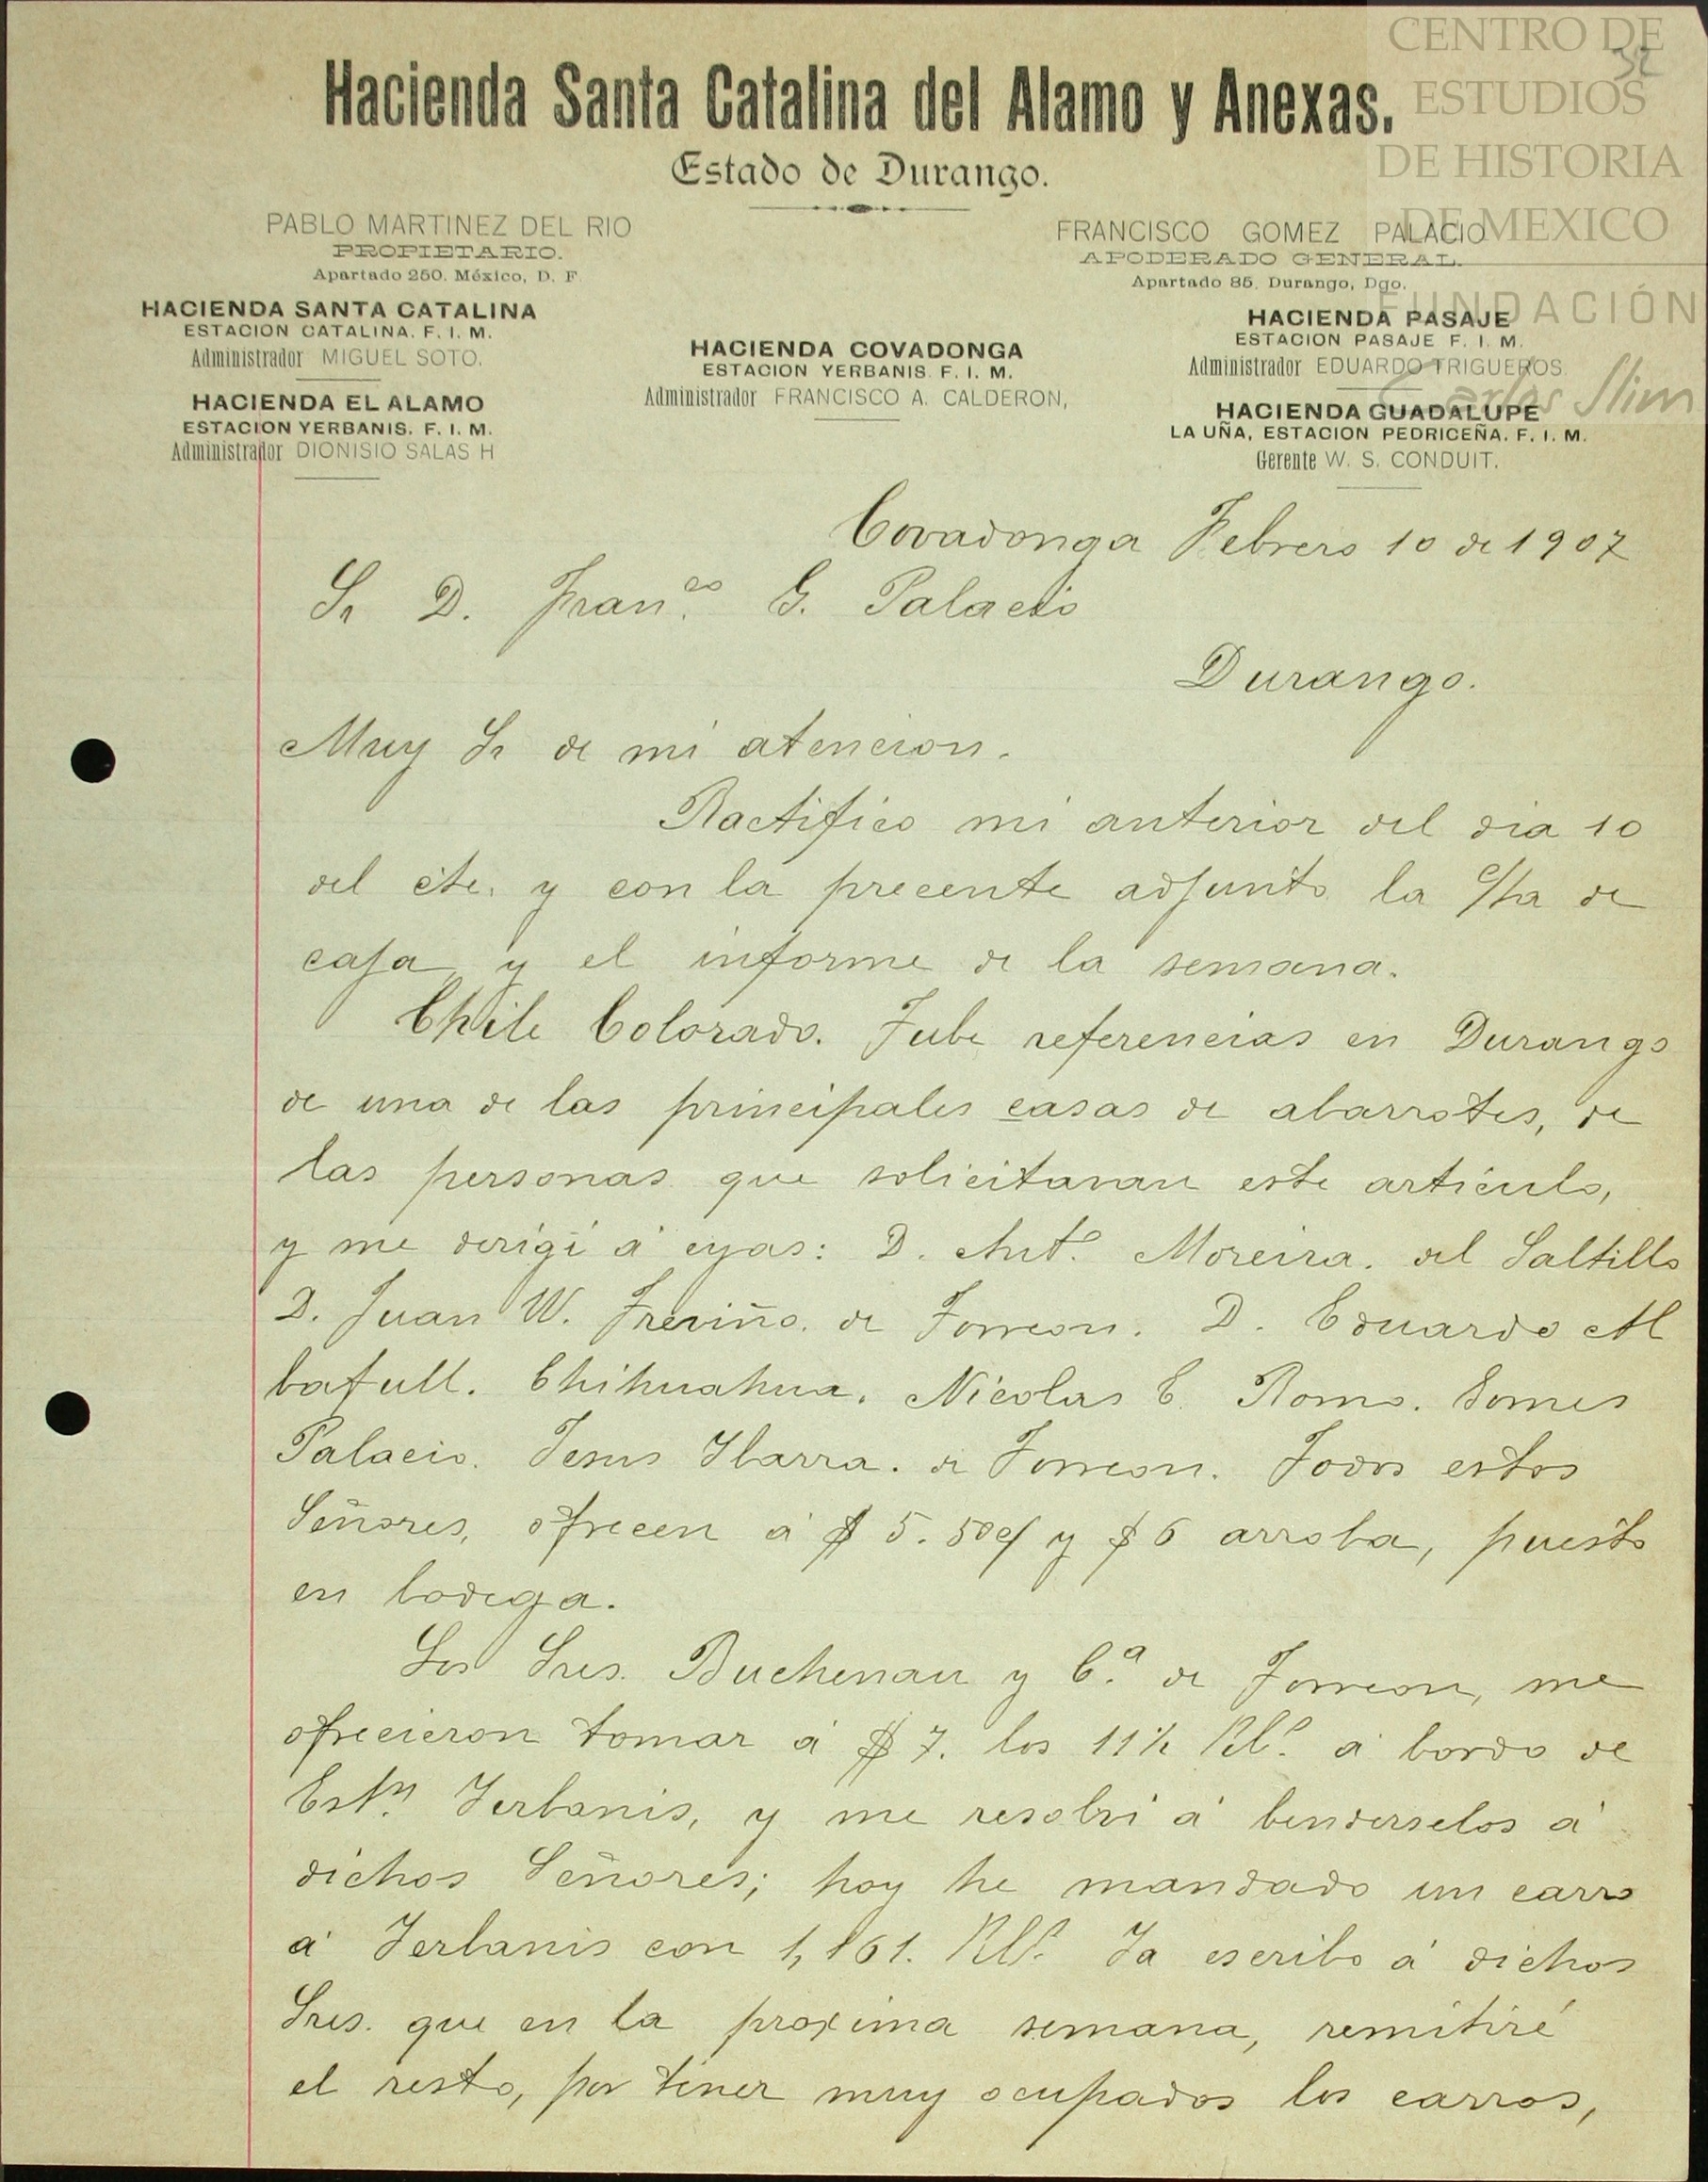 CENTRO DE
ESTUDIOS
DE HISTORIA
DE MEXICO
FUNDACIÓN
Carlos Slim
52
Hacienda Santa Catalina del Alamo y Anexas.
Estado de Durango.
PABLO MARTINEZ DEL RIO
PROPIETARIO.
Apartado 250. México, D. F.
FRANCISCO GOMEZ PALACIO
APODERADO GENERAL.
Apartado 85. Durango, Dgo.
HACIENDA SANTA CATALINA
ESTACION CATALINA. F. I. M.
Administrador MIGUEL SOTO.
HACIENDA EL ALAMO
ESTACION YERBANIS. F. I. M.
Administrador DIONISIO SALAS H
HACIENDA COVADONGA
ESTACION YERBANIS. F. I. M.
Administrador FRANCISCO A. CALDERON,
HACIENDA PASAJE
ESTACION PASAJE F. I. M.
Administrador EDUARDO TRIGUEROS.
HACIENDA GUADALUPE
LA UÑA, ESTACION PEDRICEÑA. F. I. M.
Gerente W. S. CONDUIT.
Covadonga Febrero 10 de 1907
Sr D. Fran.co G. Palacio
Durango.
Muy Sr de mi atencion.
Ractifico mi anterior del dia 10
del cte. y con la precente adjunto la c/ta de
caja y el informe de la semana.
Chile Colorado. Tube referencias en Durango
de una de las principales casas de abarrotes, de
las personas que solicitavan este artículo,
y me derigí á eyas: D. Ant.o Moreira. del Saltillo
D. Juan W. Treviño. de Torreon. D. Eduardo Al
batull. Chihuahua. Nicolas C. Romo. Gomes
Palacio. Jesus Ybarra. de Torreon. Todos estos
Señores, ofrecen á $ 5.50 c/ y $ 6 arroba, puesto
en bodega.
Los Sres. Buchenau y C.a de Torreon, me
ofrecieron tomar á $ 7. los 11½ Kl.s á bordo de
Est.n Yerbanis, y me resolví á benderselos á
dichos Señores; hoy he mandado un carro
á Yerbanis con 1,161. Kl.s Ya escribo á dichos
Sres. que en la proxima semana, remitiré
el resto, por tener muy ocupados los carros,